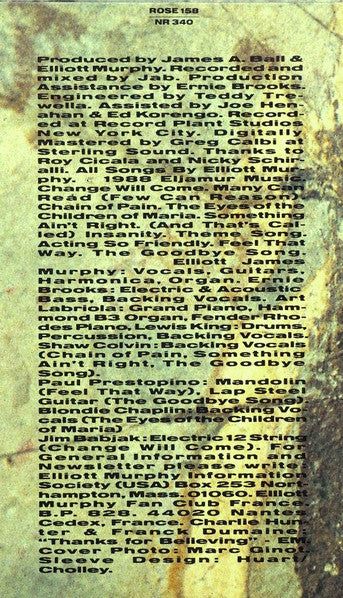 ROSE 158
NR 340
Produced by James A. Ball &
Elliott Murphy. Recorded and
mixed by Jab. Production
Assistance by Ernie Brooks.
Engineered by Teddy Tre-
wolla. Assisted by Joe Hen-
ahan & Ed Korengo. Record-
ed at Record Plant Studios
New York City. Digitally
Mastered by Greg Calbi at
Sterling Sound. Thanks to
Roy Cicala and Nicky Schir-
alli. All Songs By Elliott Mur-
phy. © 1988 Eljamur Music
Change Will Come. Many Can
Read (Few Can Reason)
Chain of Pain, The Eyes of the
Children of Maria. Something
Ain't Right. (And That's Cal-
led) Insanity. Theme Song
Acting So Friendly. Feel That
Way. The Goodbye Song
Elliott James
Murphy: Vocals, Guitar,
Harmonica, Organ. Ernie
Brooks: Electric & Acoustic
Bass, Backing Vocals. Art
Labriola: Grand Piano, Ham-
mond B3 Organ, Fender Rho-
des Piano, Lewis King: Drums,
Percussion, Backing Vocals.
Shaw Colvin: Backing Vocals
(Chain of Pain, Something
Ain't Right, The Goodbye
Song).
Paul Prestopino: Mandolin
(Feel That Way), Lap Steel
Guitar (The Goodbye Song)
Blondie Chaplin: Backing Vo-
cals (The Eyes of the Children
of Maria)
Jim Babjak: Electric 12 String
(Change Will Come). For
General Information and
Newsletter please write:
Elliott Murphy Information
Society (USA) Box 253 Nort-
hampton, Mass. 01060. Elliott
Murphy Fan Club France
B.P. 828. 44020 Nantes
Cedex, France. Charlie Hun-
ter & Franci Dumaine,
"Thanks for Believing" - EM.
Cover Photo: Marc Ginot.
Sleeve Design: Huart/
Cholley.